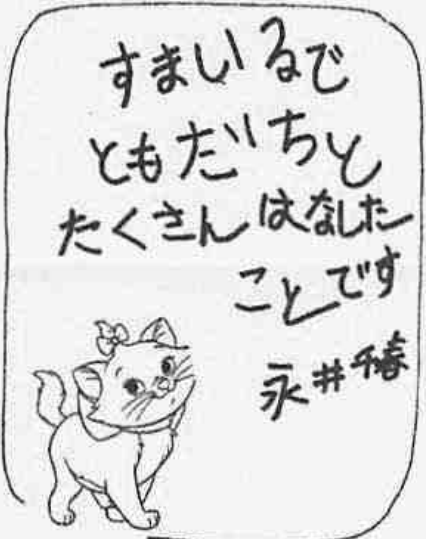 すまいるで
ともだちと
たくさんはなした
ことです
永井千春